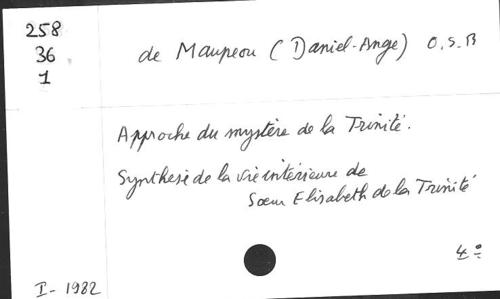 258
36
1
de Maupeou (Daniel-Ange) O.S.B
Approche du mystère de la Trinité.
Synthese de la vie intérieure de
Sœur Elisabeth de la Trinité
4º
I - 1982